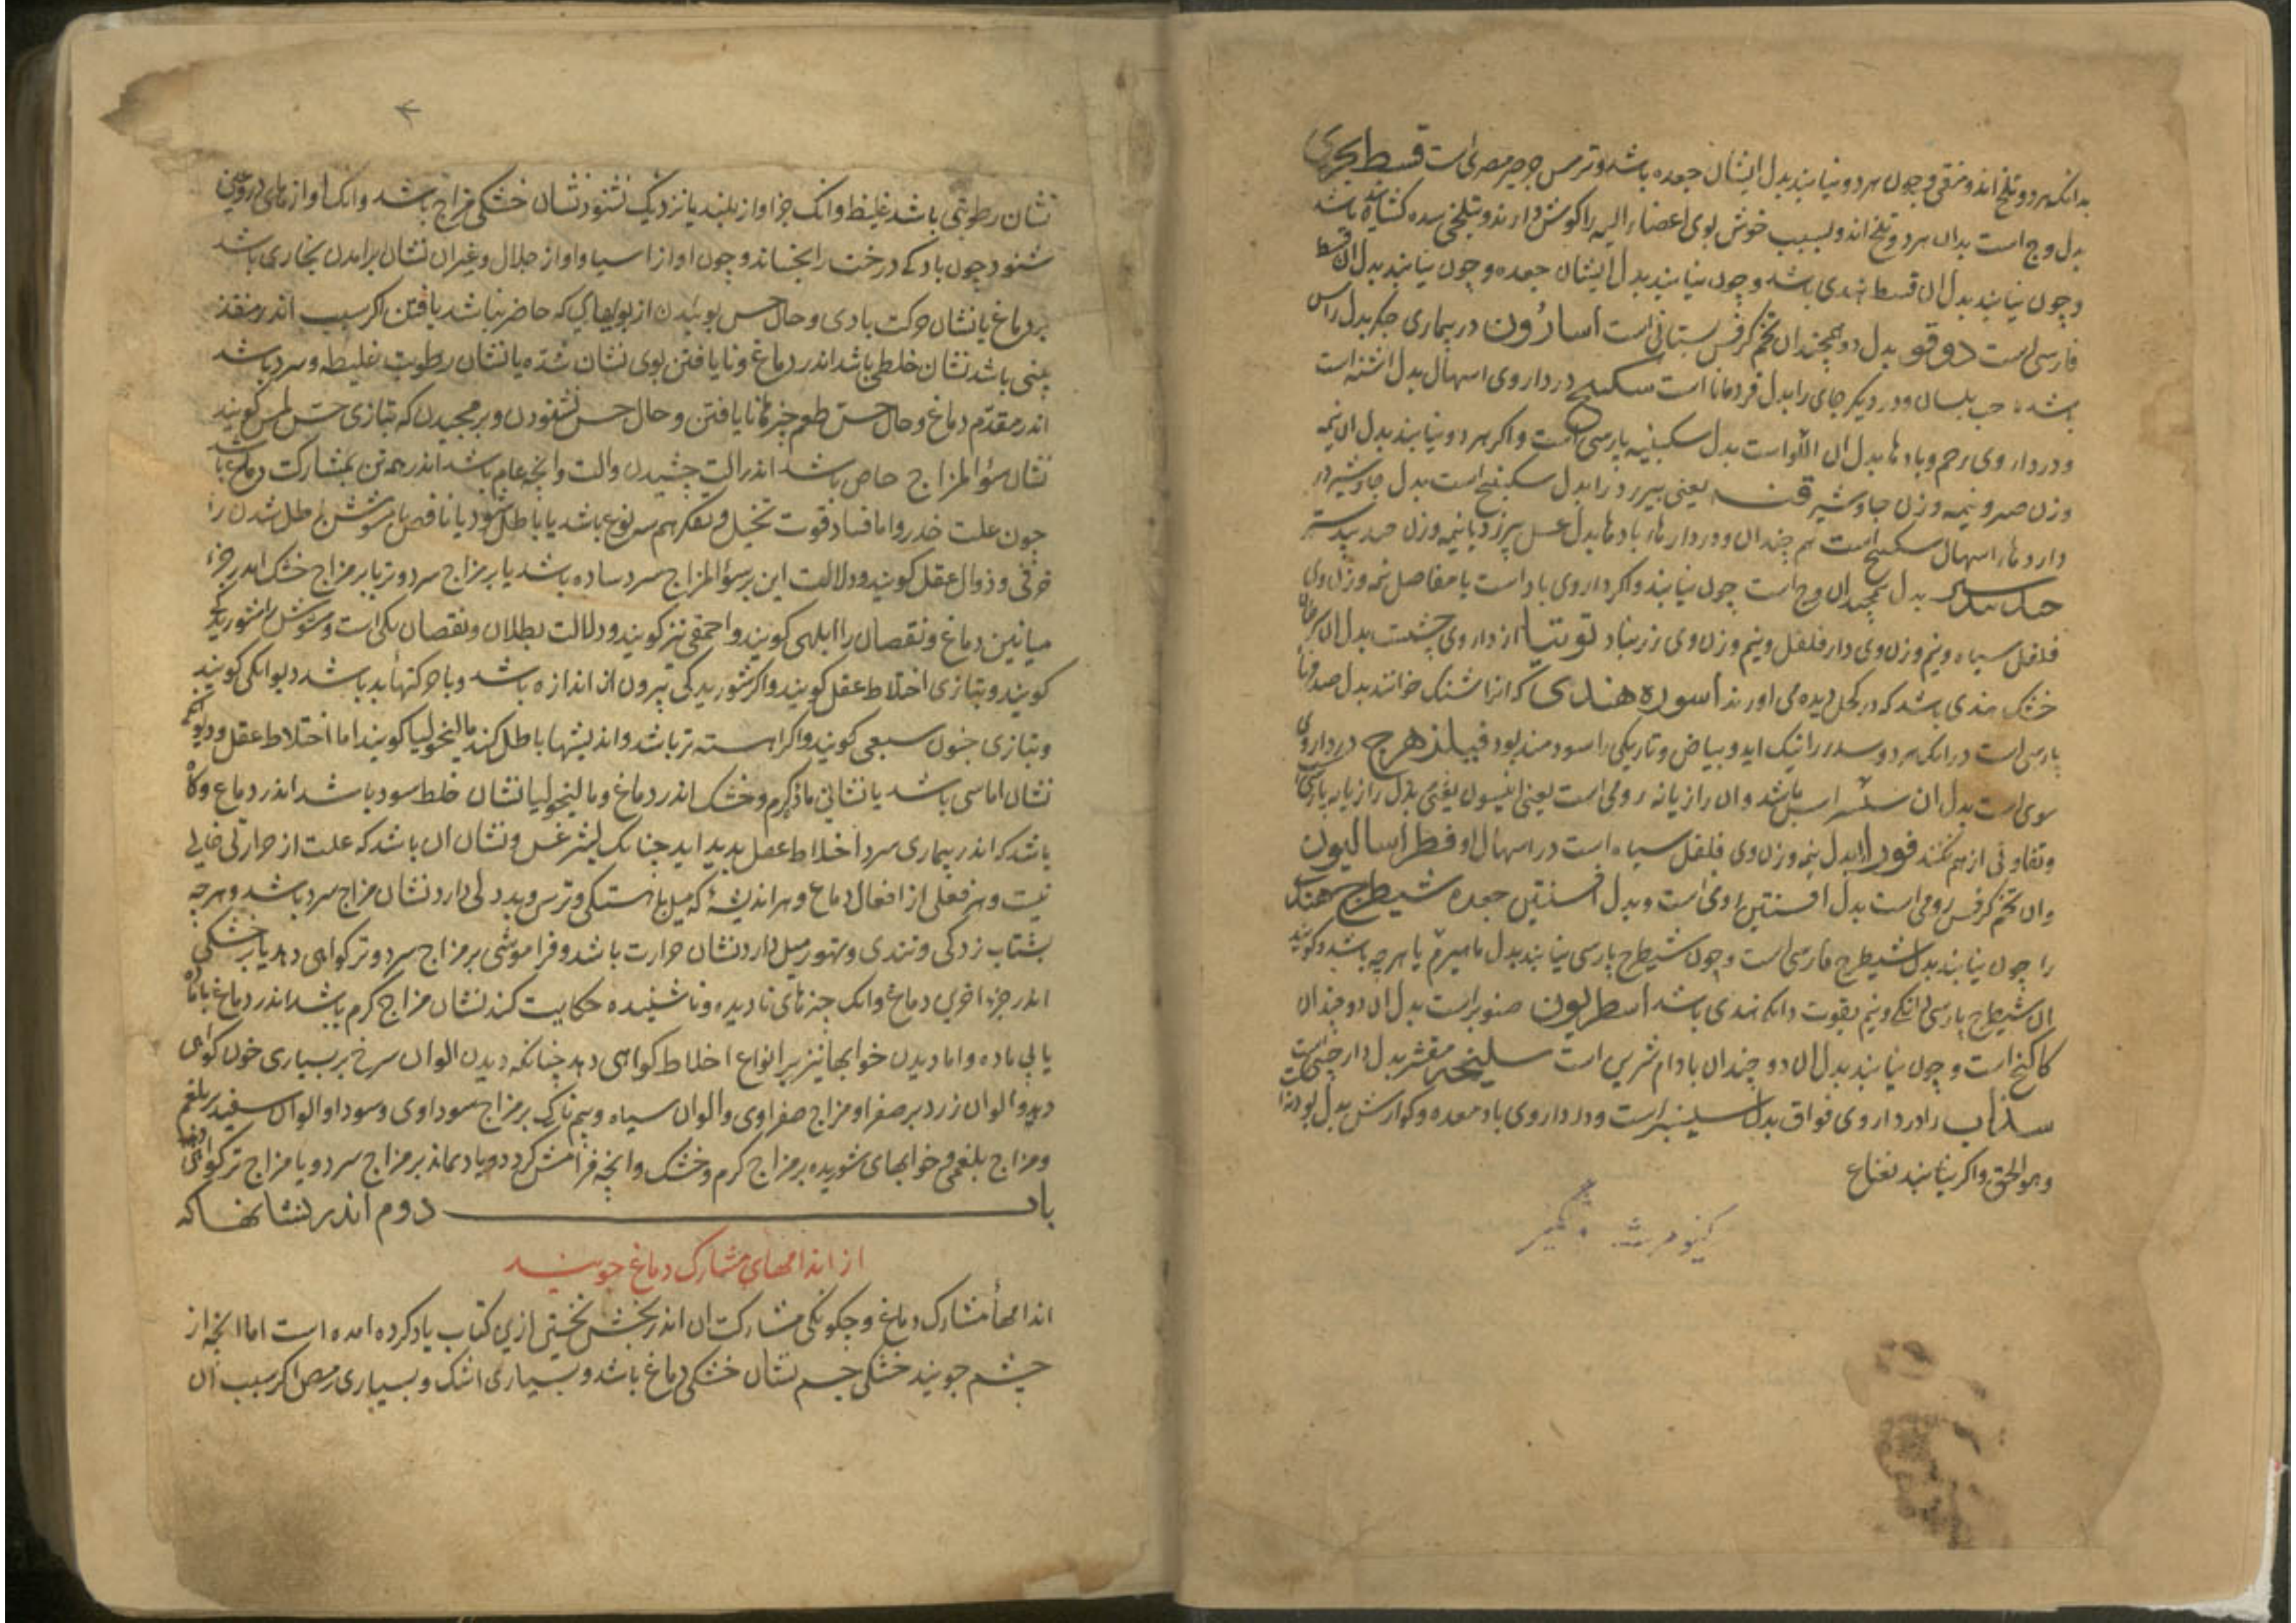 بدانکه هر دو تلخ اند و منقی و چون هر دو نیابند بدل ایشان جعده باشد و ترمس مصری است قسط بحری
بدل وج است بدان هر دو تلخ اند و بسبب خوش بوی اعضاء الیه را کوش دارند و بتلخی سده کشاینده باشد
و چون نیابند بدل ان قسط هندی باشد و چون نیابند بدل ایشان جعده و چون نیابند بدل ان قسط
فارسی است دوقو بدل دو همچندان تخم کرفس بستانی است اسارون در بیماری جکر بدل راس
باشد حب بلسان و در دیکر جای را بدل قردمانا است سکبینج در داروی اسهال بدل اشنه است
و در داروی رحم و بادها بدل ان است بدل سکبینه پارسی است و اکر هر دو نیابند بدل ان نیمه
وزن و نیمه وزن جاوشیر قنه یعنی بیرزد را بدل سکبینج است بدل جاوشیر در
داروها اسهال سکبینج است هم چندان و در دارها بادها بدل عسل بیرزد یا نیمه وزن جندبیدستر
بدل همچندان وج است چون نیابند و اکر داروی باد است یا مفاصل نیمه وزن وی
فلفل سیاه و نیم وزن وی دار فلفل و نیم وزن وی زرنباد توتیا از داروی چشمست بدل ان
خشک هندی باشد که در کحل دیده می اورند اسوره هندی که انرا شنک خوانند بدل صدف
پارسی است در انک هر دو را نیک اید و بیاض و تاریکی را سودمند بود فیلزهرج در داروی
موی است بدل ان باشد و ان رازیانه رومی است یعنی انیسون یعنی بدل رازیانه پارسی
و تفاوتی از هم نکنند بدل نیمه وزن وی فلفل سیاه است در اسهال او فطراسالیون
وان تخم کرفس رومی است بدل افسنتین اوی است و بدل افسنتین جعده شیطرج هندی
را چون نیابند بدل شیطرج فارسی است و چون شیطرج پارسی نیابند بدل یا هر چه باشد و کویند
ان شیطرج پارسی دانکی و نیم بقوت دانک هندی باشد اسطریون صنوبر است بدل ان دو چندان
کاکنج است و چون نیابند بدل ان دو چندان بادام شیرین است سلیخه مقشر بدل دارچینی است
سذاب را در داروی فواق بدل سیسنبر است و در داروی باد معده و کوارش بدل پودنه
و هو الحق و اکر نیابند نعناع
نشان رطوبتی باشد غلیظ و انک جز اواز بلند یا نزدیک نشنود نشان خشکی مزاج باشد و انک اوازهای دروغین
شنود چون باد که درخت را بجنباند و چون اواز اسیا و اواز جلال و غیر ان نشان برامدن بخاری باشد
بر دماغ یا نشان حرکت بادی و حال حس بوییدن از بویهایی که حاضر نباشد یافتن اکر سبب اندر منفذ
بینی باشد نشان خلطی باشد اندر دماغ و نا یافتن بوی نشان سده یا نشان رطوبت غلیظ و سرد باشد
اندر مقدم دماغ و حال حس طعم چیزها نایافتن و حال حس بشنودن و برمجیدن که بتازی حس لمس کویند
نشان سوء المزاج خاص باشد اندر الت چشیدن والت وانچه عام باشد اندر همه تن بمشارکت دماغ باشد
چون علت خدر و اما فساد قوت تخیل و تفکر هم سه نوع باشد یا باطل شود یا ناقص یا مشوش باطل شدن را
خرفی و ذوال عقل کویند و دلالت این بر سوء المزاج سرد ساده باشد یا بر مزاج سرد و تر یا بر مزاج خشک اندر جزء
میانین دماغ و نقصان را ابلهی کویند و احمقی نیز کویند و دلالت بطلان و نقصان یکی است و مشوش را شوریدکی
کویند و بتازی اختلاط عقل کویند و اکر شوریدکی بیرون از اندازه باشد و با حرکتها بد باشد دیوانکی کویند
و بتازی جنون سبعی کویند و اکر اهسته تر باشد و اندیشها باطل کند مالنخولیا کویند اما اختلاط عقل و دیوانکی
نشان اماسی باشد یا نشانی ماده کرم و خشک اندر دماغ و مالینخولیا نشان خلط سودا باشد اندر دماغ و کاه
باشد که اندر بیماری سرد اختلاط عقل پدید اید چنانک لیثرغس و نشان ان باشد که علت از حرارتی خالی
نیست و هر فعلی از افعال دماغ و هر اندیشه که میل باهستکی و ترس و بددلی دارد نشان مزاج سرد باشد و هر چه
بشتاب زدکی و تندی و تهور میل دارد نشان حرارت باشد و فراموشی بر مزاج سرد و تر کواهی دهد یا بر خشکی
اندر جزء اخرین دماغ و انک چیزهای نادیده و ناشنیده حکایت کند نشان مزاج کرم باشد اندر دماغ با ماده
یا بی ماده و اما دیدن خوابها نیز بر انواع اخلاط کواهی دهد چنانکه دیدن الوان سرخ بر بسیاری خون کواهی
دهد و الوان زرد بر صفرا و مزاج صفراوی و الوان سیاه و بیم ناک بر مزاج سوداوی و سودا و الوان سفید بر بلغم
و مزاج بلغمی و خوابهای شوریده بر مزاج کرم و خشک و انچه فرامش کردد و یاد نماند بر مزاج سرد و یا مزاج تر کواهی دهد
باب دوم اندر نشانها که
از اندامهای مشارک دماغ جویند
اندامها مشارک دماغ و چکونکی مشارکت ان اندر بخش نخستین ازین کتاب یاد کرده امده است اما انچه از
چشم جویند خشکی چشم نشان خشکی دماغ باشد و بسیاری اشک و بسیاری رمص اکر سبب ان